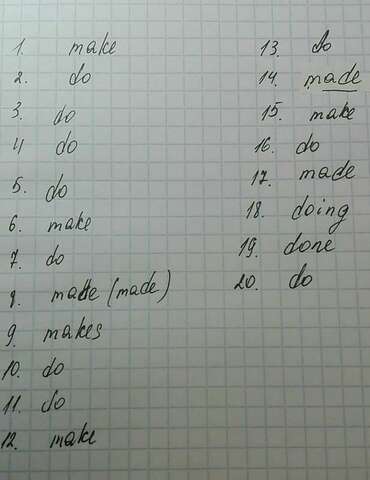 1. make
2. do
3. do
4 do
5. do
6. make
7. do
8. made (made)
9. makes
10. do
11. do
12. make
13. do
14. made
15. make
16. do
17. made
18. doing
19. done
20. do